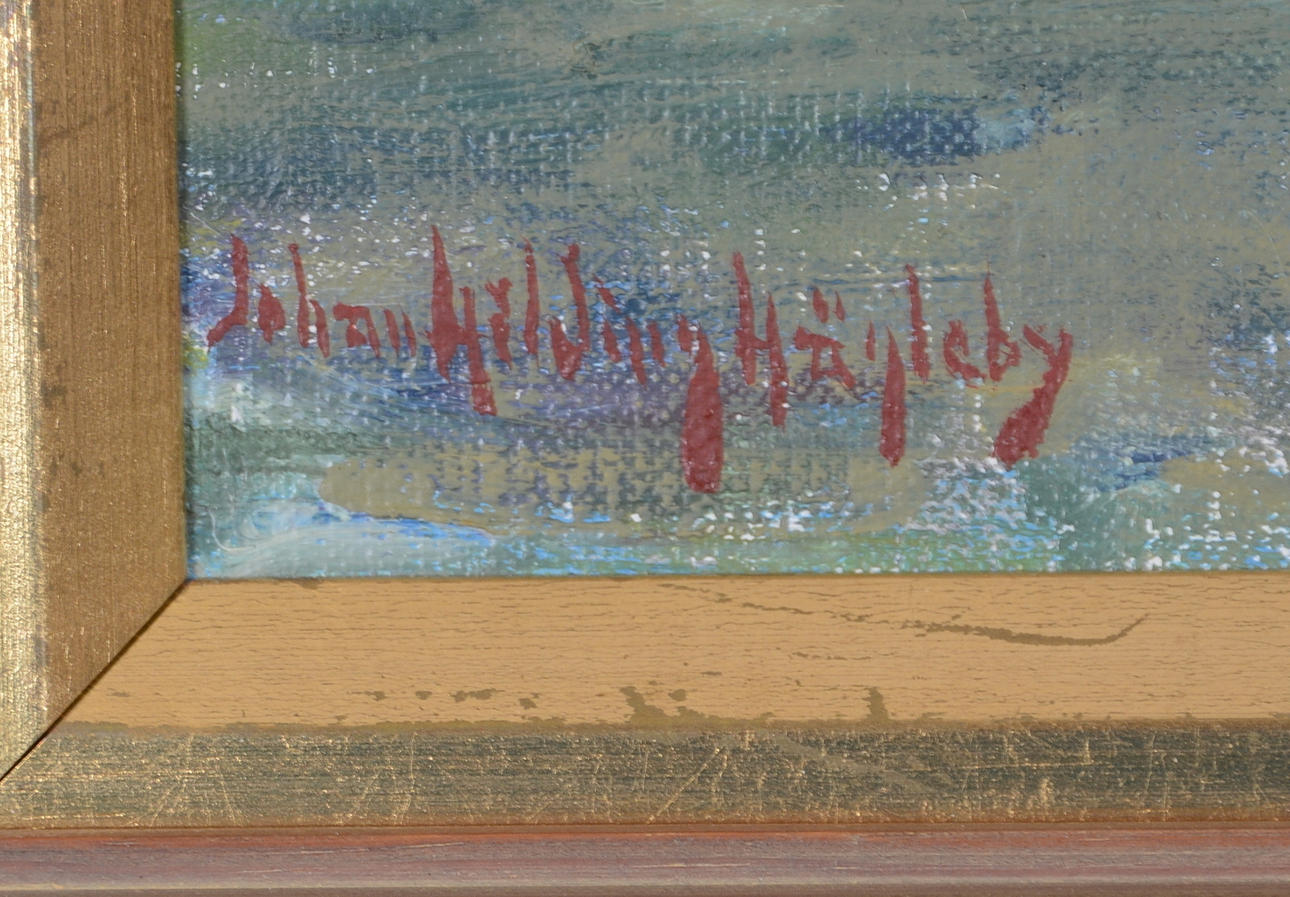 Johan Hilding Hägleby